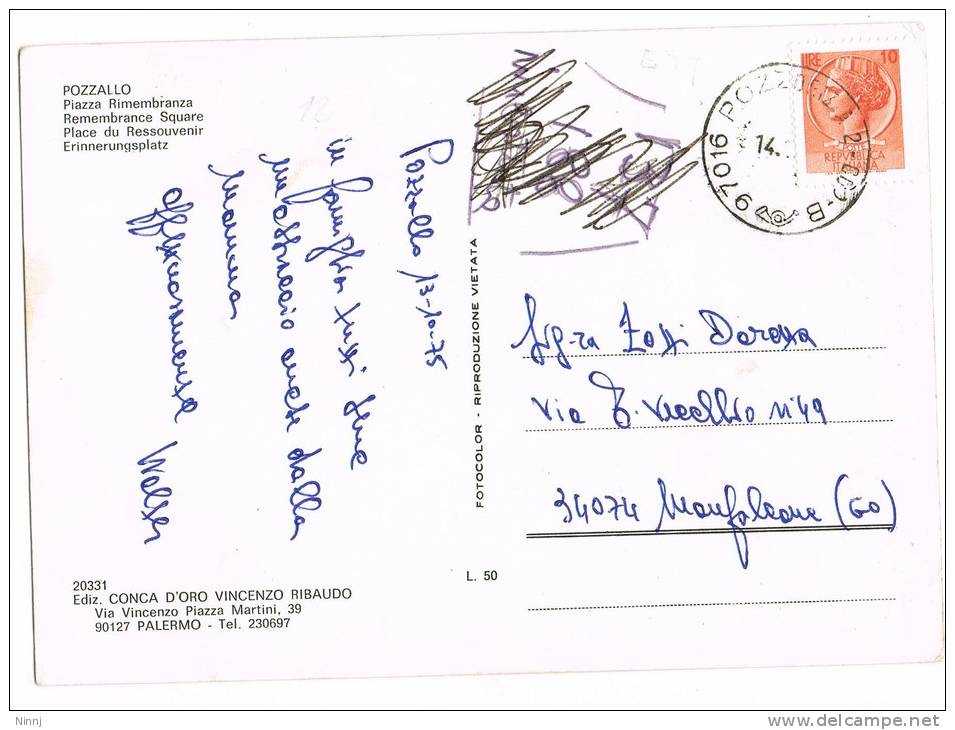 POZZALLO
Piazza Rimembranza
Remembrance Square
Place du Ressouvenir
Erinnerungsplatz
Pozzallo, 13-10-75
in famiglia tutti bene
un abbraccio anche dalla
mamma
affettuosamente Walter
20331
Ediz. CONCA D'ORO VINCENZO RIBAUDO
Via Vincenzo Piazza Martini, 39
90127 PALERMO - Tel. 230697
FOTOCOLOR - RIPRODUZIONE VIETATA
L. 50
LIRE 10
REPVBBLICA
ITALIANA
97016 POZZ
14.
B
Sig-ra
via T. Vecellio n°49
34074 Monfalcone (GO)
Ninnj
www.delcampe.net